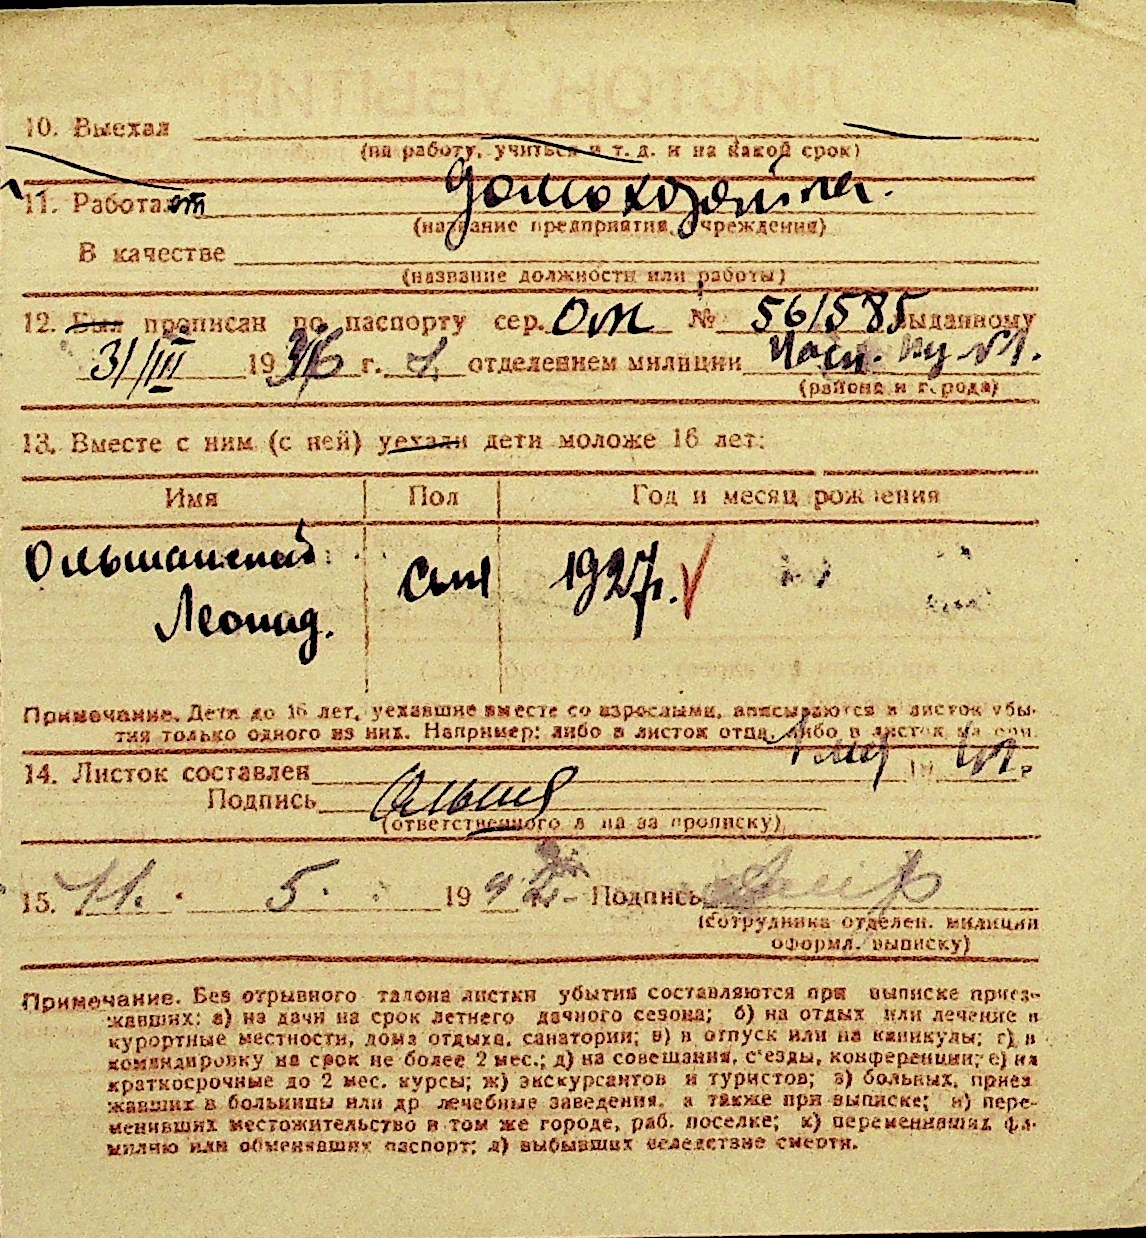 ЛИСТОК УБЫТИЯ
10. Выехал
(на работу, учиться и т. д. и на какой срок)
11. Работает домохозяйка.
(название предприятия, учреждения)
В качестве
(название должности или работы)
12. Был прописан по паспорту сер. ОМ № 561585 выданному
31/III 1936 г. отделением милиции
(района и города)
13. Вместе с ним (с ней) уехали дети моложе 16 лет:
Имя Пол Год и месяц рождения
Ольшанский Леонид. 1927г.
Примечание. Дети до 16 лет, уехавшие вместе со взрослыми, вписываются в листок убы-
тия только одного из них. Например: либо в листок отца, либо в листок матери.
14. Листок составлен 19 г.
Подпись
(ответственного л на за прописку)
15. 11. 5. 1942 Подпись
(сотрудника отделен. милиции
оформл. выписку)
Примечание. Без отрывного талона листки убытия составляются при выписке приез-
жавших: а) на дачи на срок летнего дачного сезона; б) на отдых или лечение в
курортные местности, дома отдыха, санатории; в) в отпуск или на каникулы; г) в
командировку на срок не более 2 мес.; д) на совещания, с'езды, конференции; е) на
краткосрочные до 2 мес. курсы; ж) экскурсантов и туристов; з) больных, приез
жавших в больницы или др лечебные заведения, а также при выписке; и) пере-
менивших местожительство в том же городе, раб. поселке; к) переменивших фа-
милию или обменявших паспорт; л) выбывших вследствие смерти.